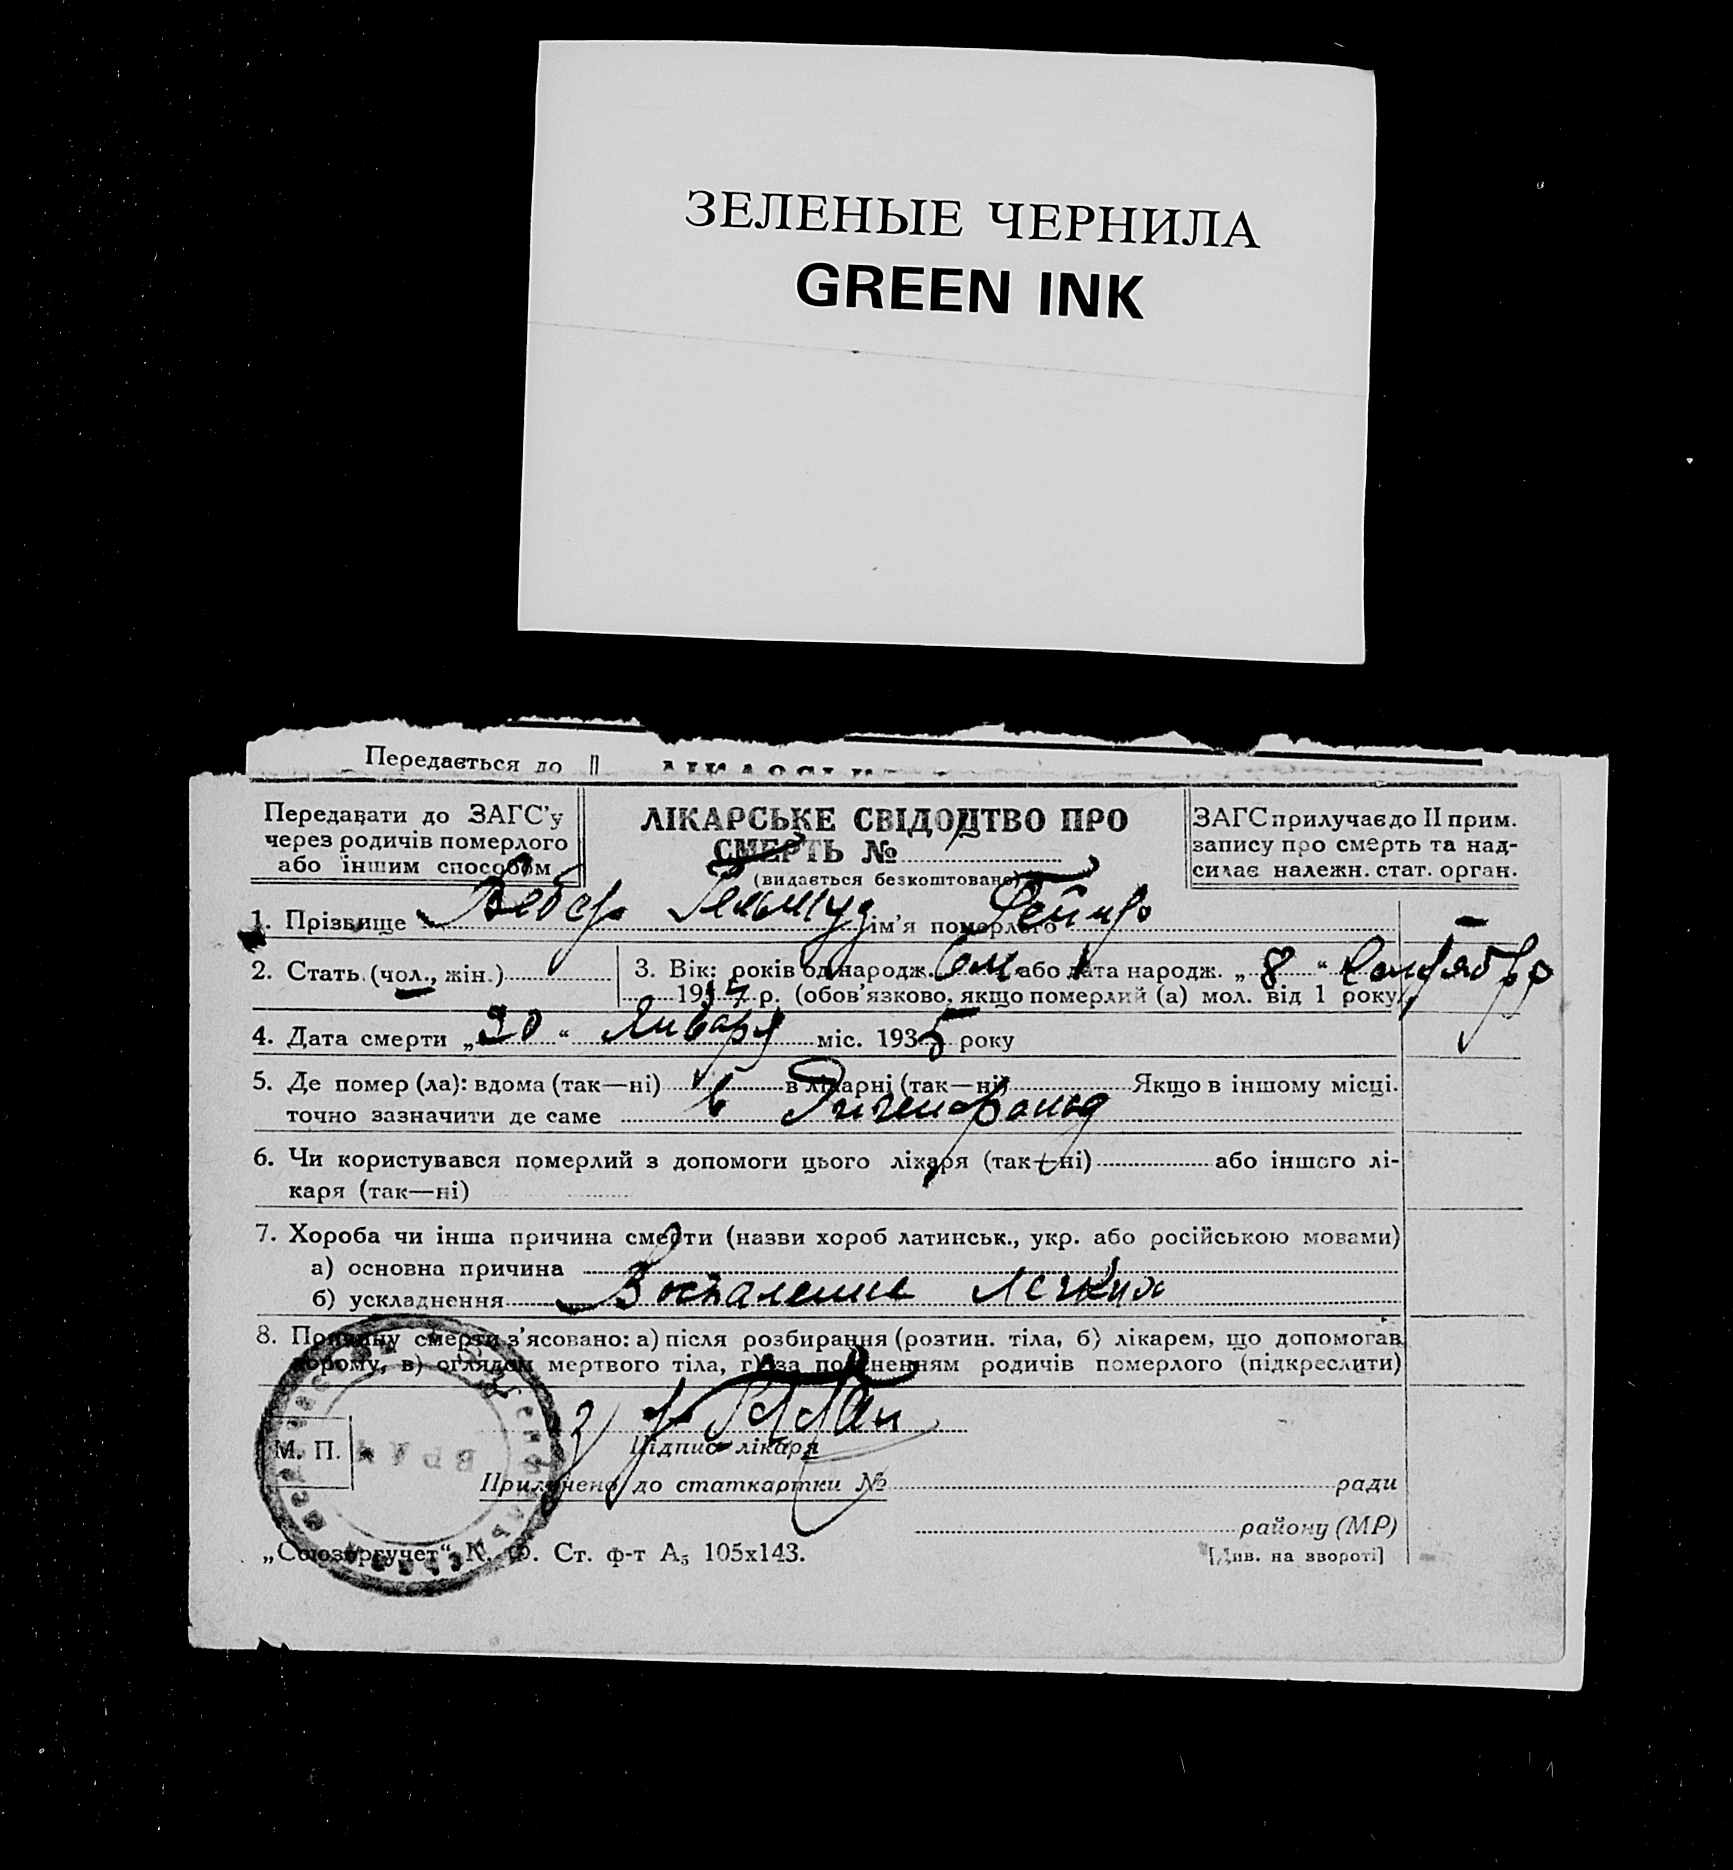 ЗЕЛЕНЫЕ ЧЕРНИЛА
GREEN INK
Передається до
Передавати до ЗАГС'у
через родичів померлого
або іншим способом
ЛІКАРСЬКЕ СВІДОЦТВО ПРО
СМЕРТЬ №
(видається безкоштовано)
ЗАГС прилучає до II прим.
запису про смерть та над-
силає належн. стат. орган.
1. Прізвище Вебер Гельмуд ім'я померлого
2. Стать (чол., жін.)
3. Вік: років од народж. 6 м. або дата народж. „ 8 “
193 р. (обов'язково, якщо померлий (а) мол. від 1 року
4. Дата смерти „ “ Января міс. 1935 року
5. Де помер (ла): вдома (так—ні) в лікарні (так—ні) Якщо в іншому місці.
точно зазначити де саме в
6. Чи користувався померлий з допомоги цього лікаря (так—ні) або іншого лі-
каря (так—ні)
7. Хороба чи інша причина смерти (назви хороб латинськ., укр. або російською мовами)
а) основна причина
б) ускладнення Воспаление легких
8. Причину смерти з'ясовано: а) після розбирання (розтин. тіла, б) лікарем, що допомогав
хорому, в) оглядом мертвого тіла, г) за поясненням родичів померлого (підкреслити)
М. П.
ВРАЧ
Підпис лікаря
Прилучено до статкартки № ради
району (МР)
„Союзоргучет“ К. Ф. Ст. ф-т А₅ 105х143.
[Див. на звороті]